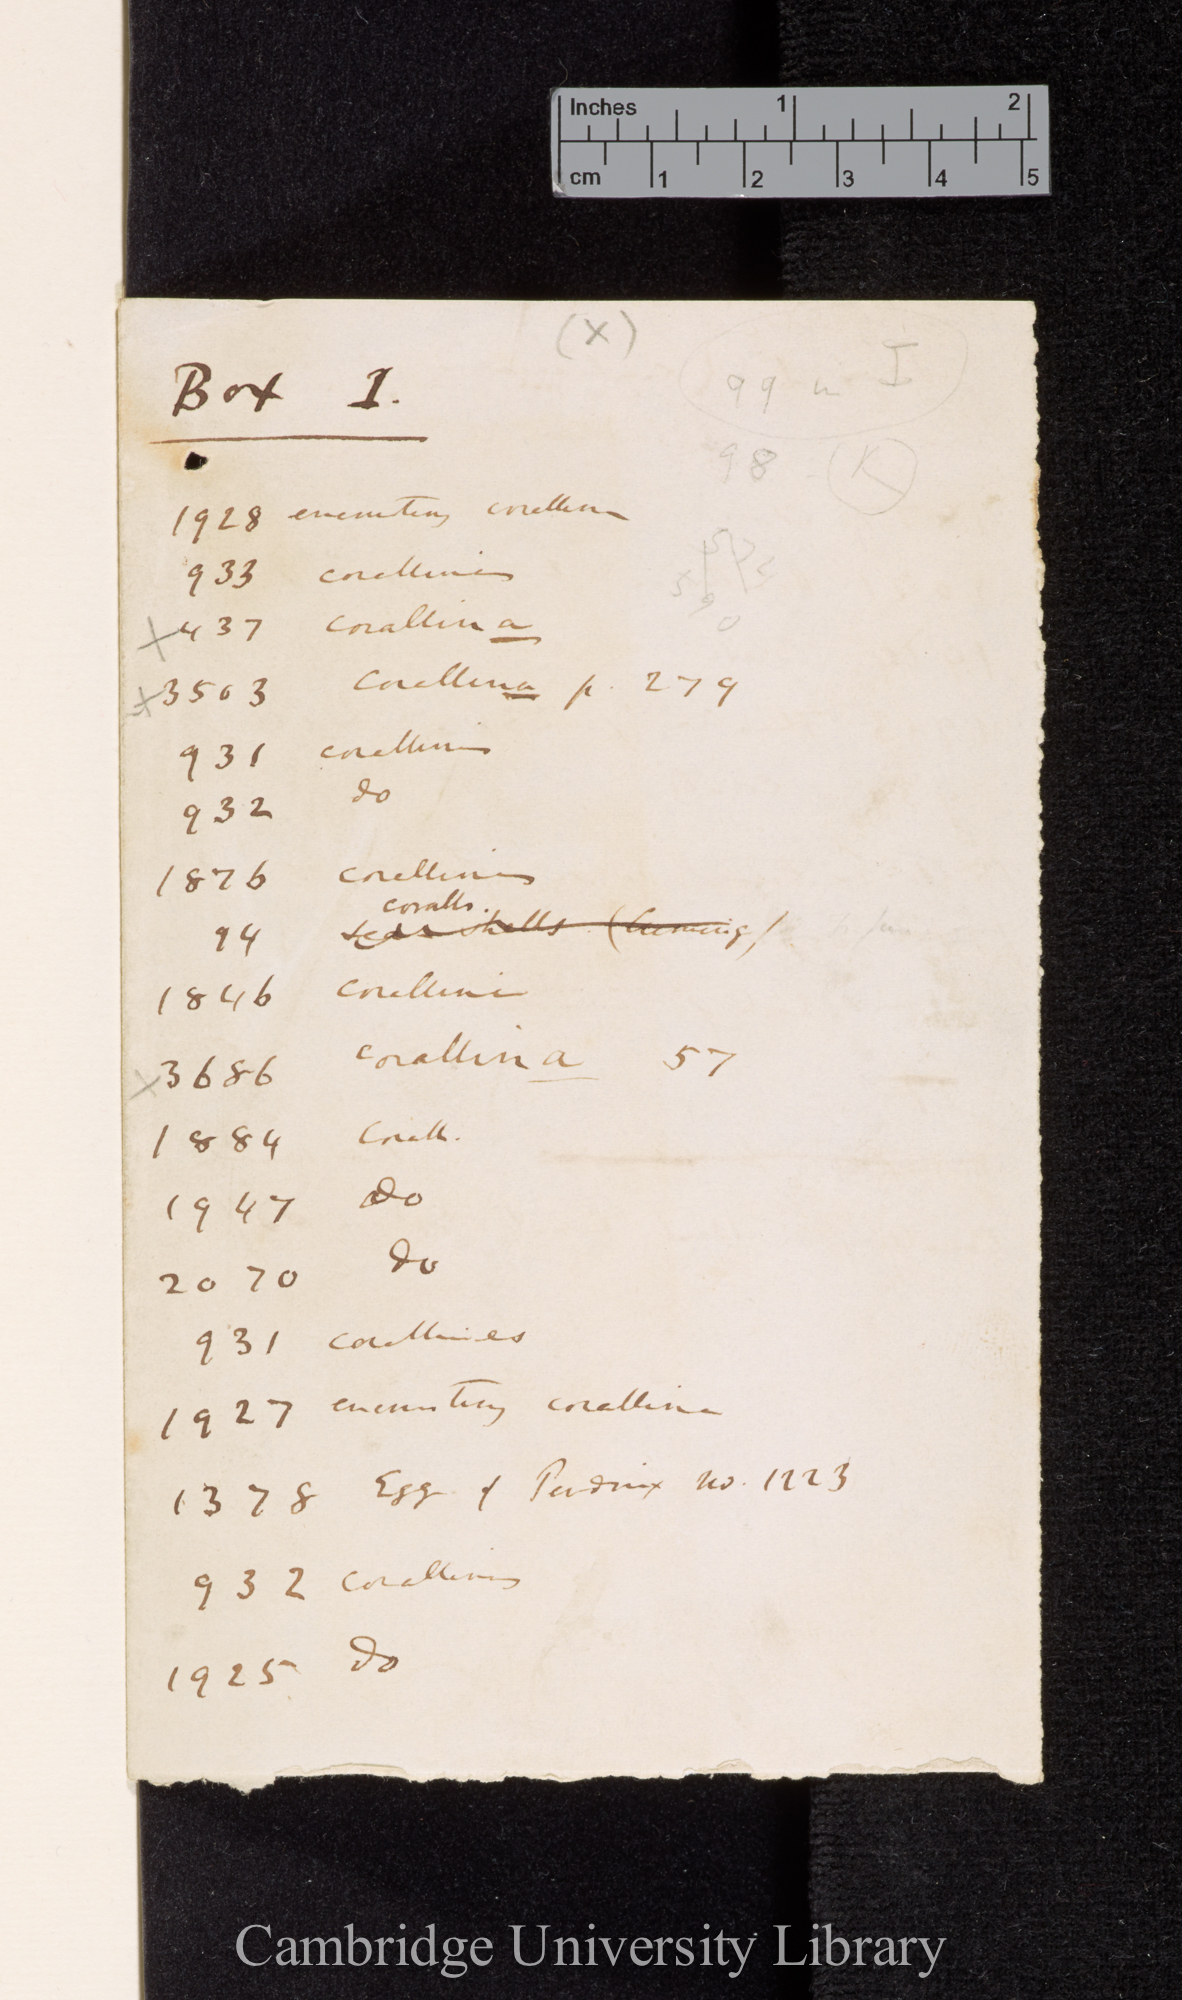 Inches 1 2
cm 1 2 3 4 5
(X)
99 in I
Box I.
98 - K
1928 encrusting coralline
933 corallines
X 437 corallina
X 3503 Corallina p. 279
931 corallines
932 do
1876 corallines
coralls.
94 shells (Cuming)
1846 coralline
X 3686 corallina 57
1884 Corall.
1947 Do
2070 Do
931 corallines
1927 encrusting coralline
1378 Egg of Perdrix no. 1223
932 corallines
1925 Do
Cambridge University Library